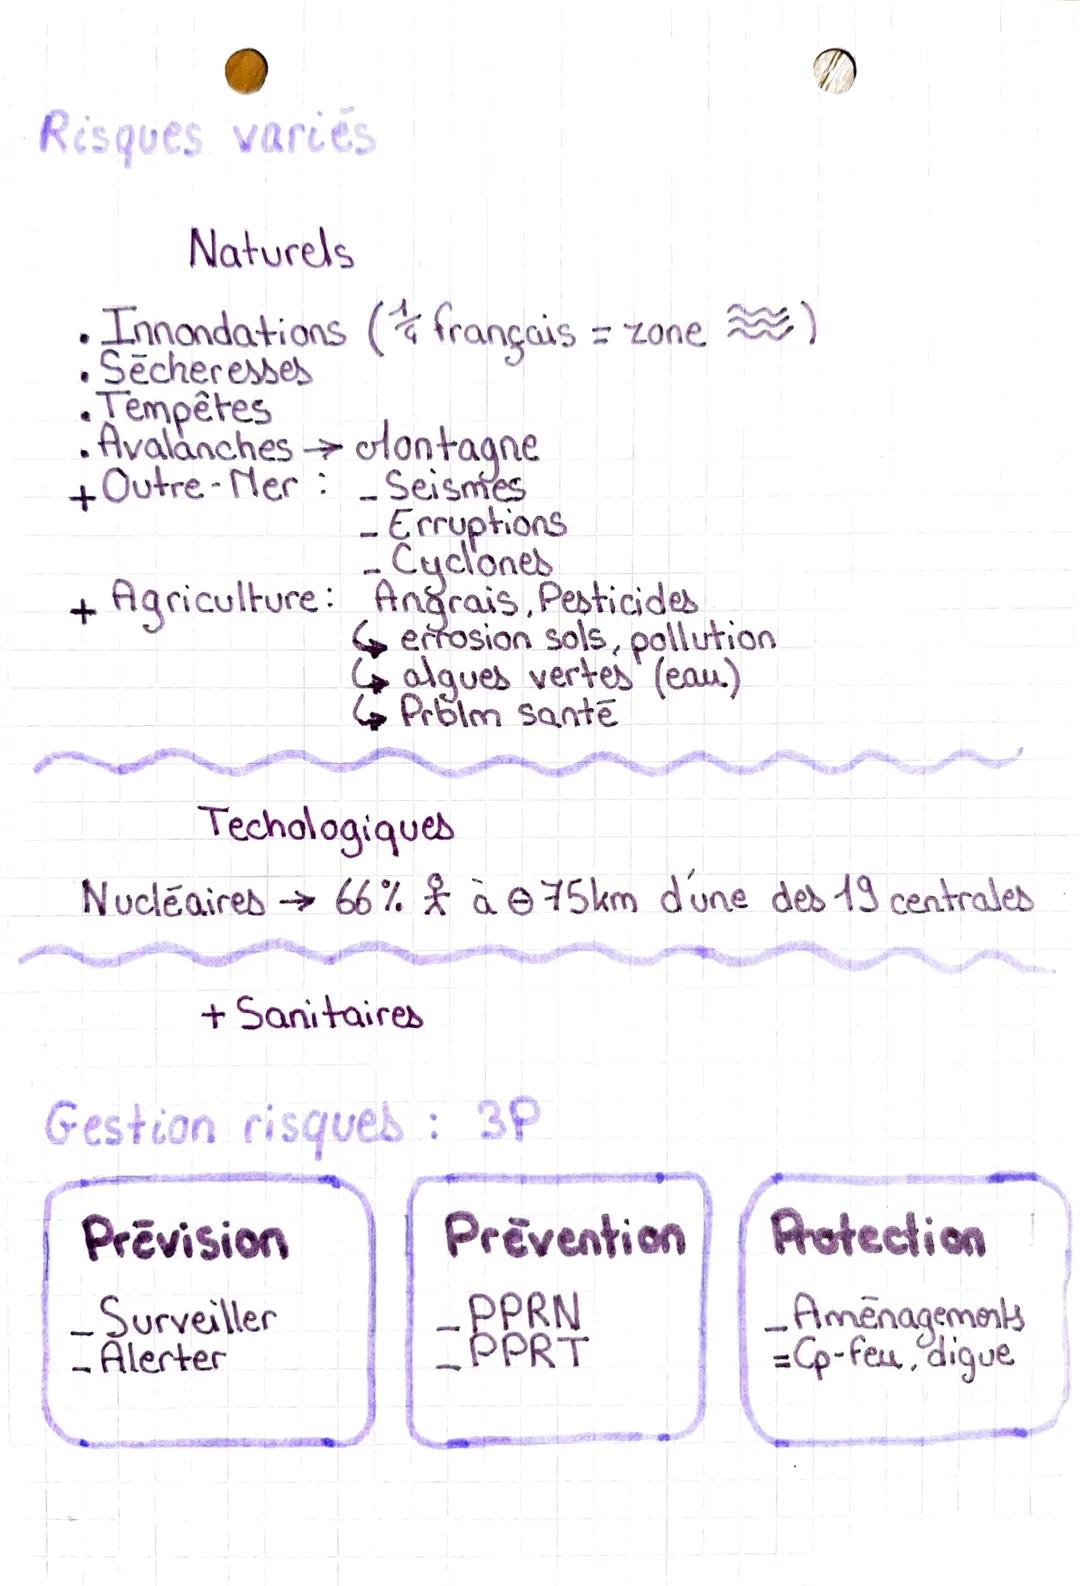 Risques variés
Naturels
. Innondations (1/4 français = zone )
. Sécheresses
. Tempêtes
. Avalanches → Montagne
+ Outre-Mer : - Seismes
- Erruptions
- Cyclones
+ Agriculture : Angrais, Pesticides
↳ errosion sols, pollution
↳ algues vertes (eau)
↳ Prblm santé
Techologiques
Nucléaires → 66% à ⊖ 75km d'une des 19 centrales
+ Sanitaires
Gestion risques : 3P
Prévision
- Surveiller
- Alerter
Prévention
- PPRN
- PPRT
Protection
- Aménagements
= Cp-feu, digue